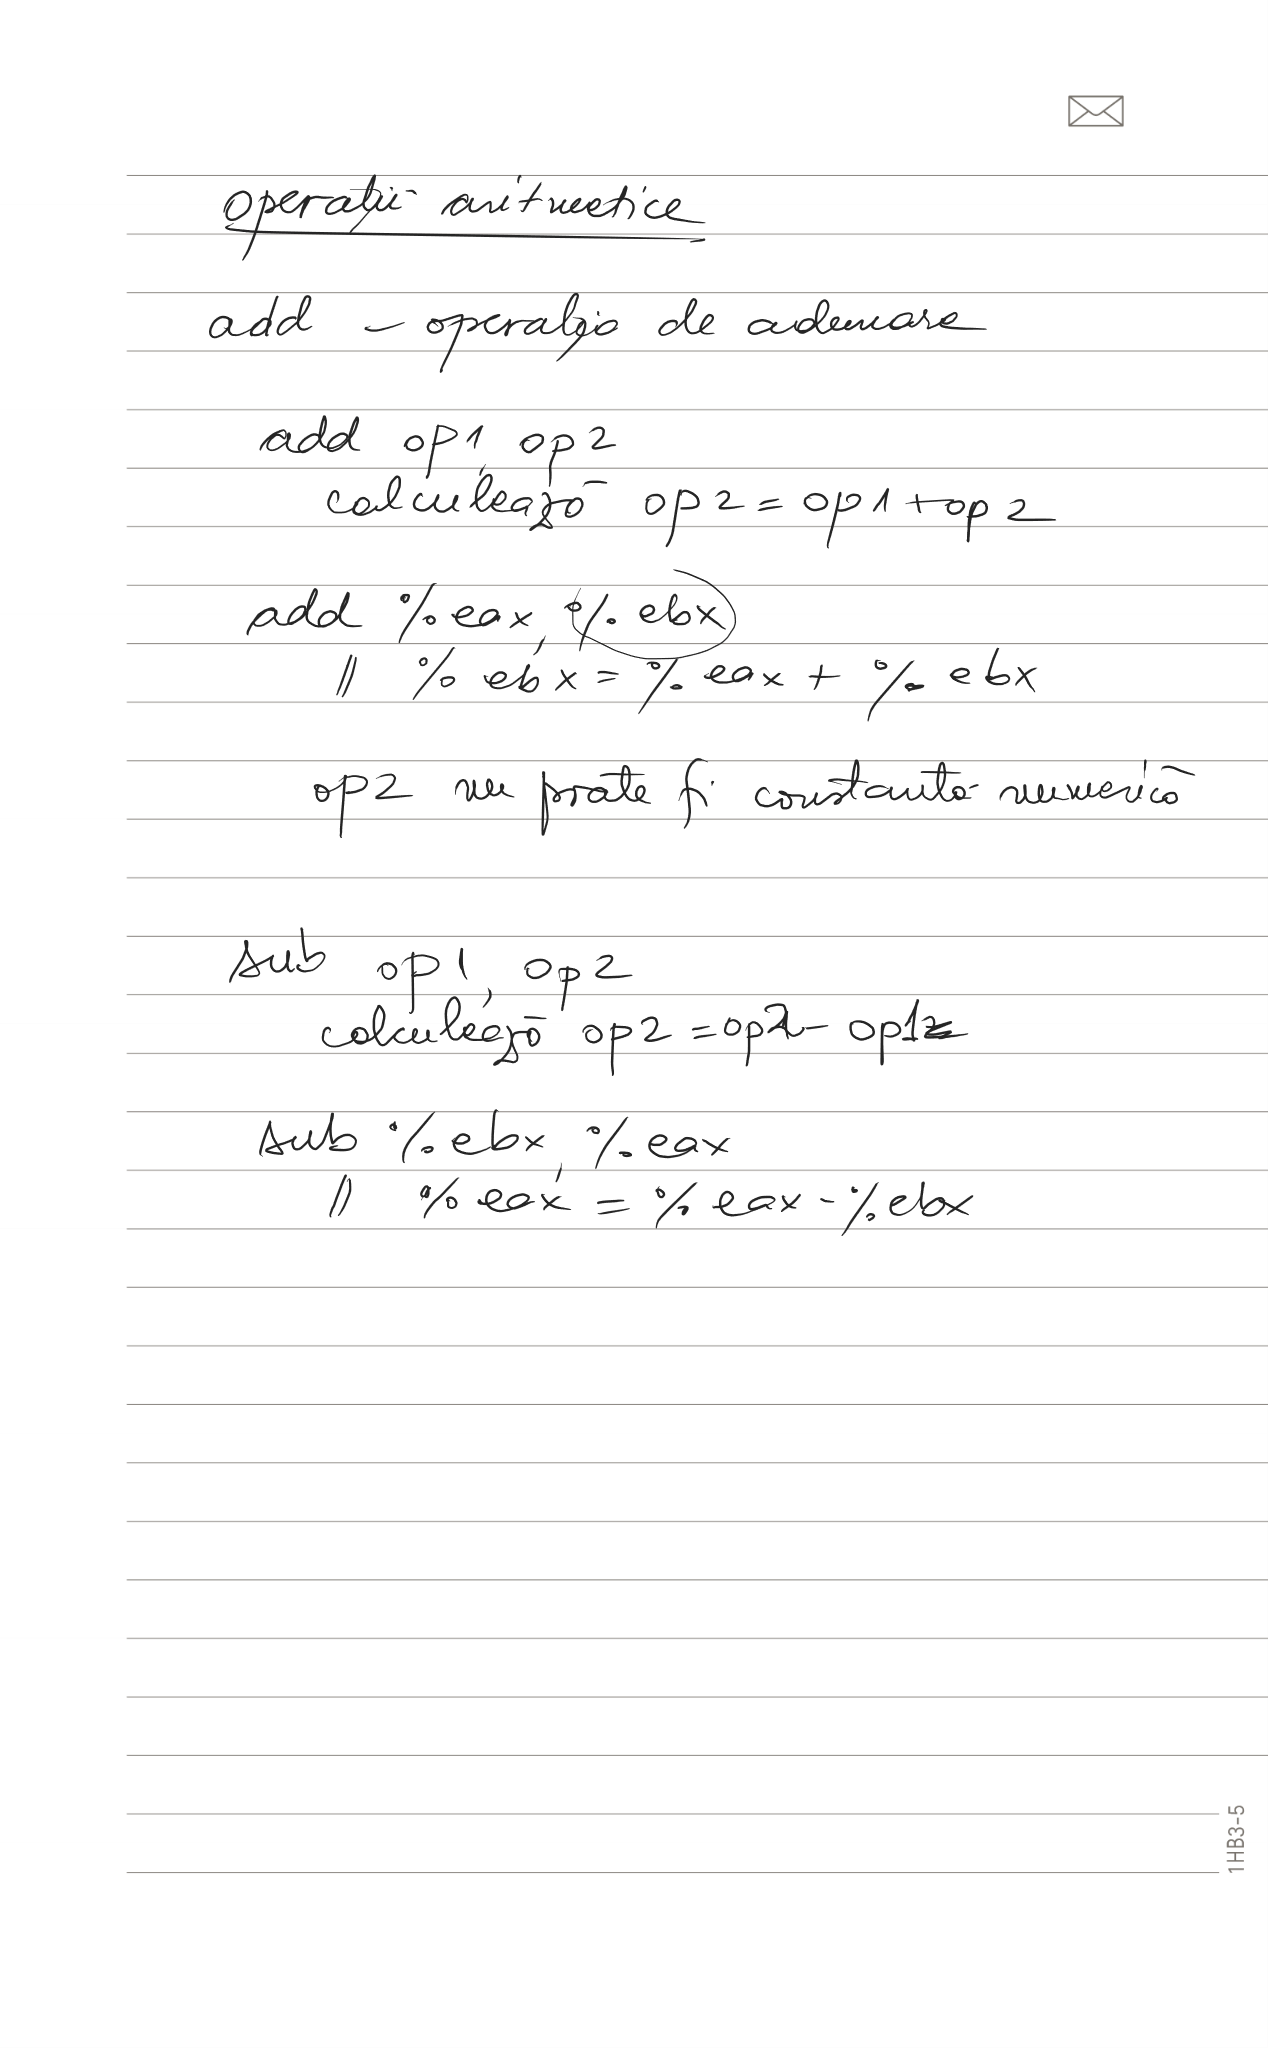 operații aritmetice
add - operație de adunare
add op1, op2
calculează op2 = op1 + op2
add %eax, %ebx
// %ebx = %eax + %ebx
op2 nu poate fi constantă numerică
sub op1, op2
calculează op2 = op2 - op1
sub %ebx, %eax
// %eax = %eax - %ebx
1HB3-5